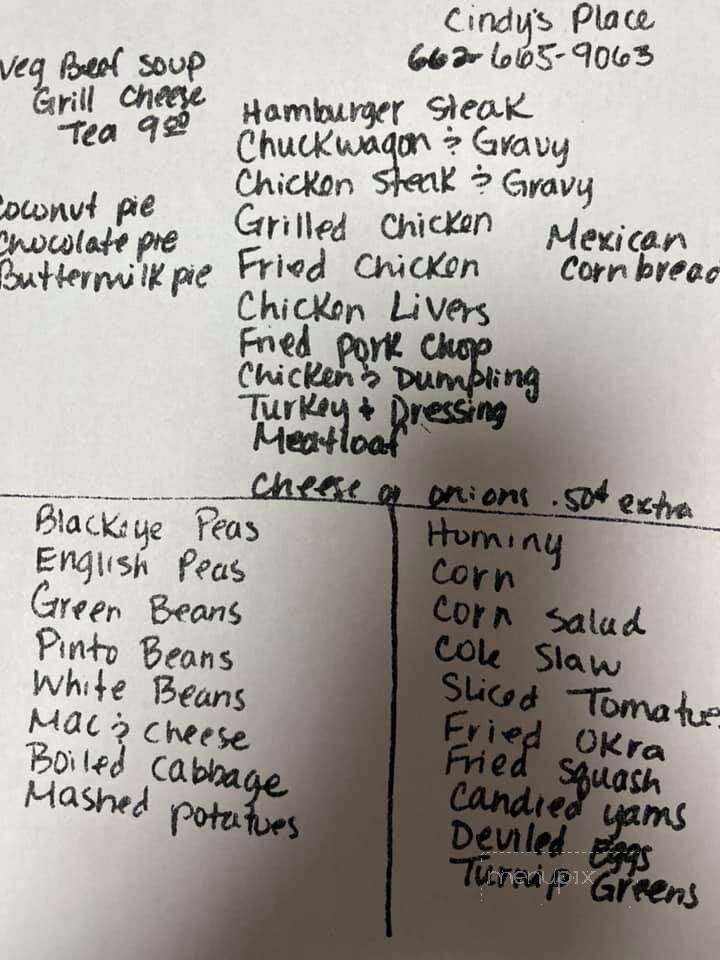 Cindy's Place
662-665-9063
Veg Beef soup
Grill cheese
Tea 9.50
Coconut pie
Chocolate pie
Buttermilk pie
Hamburger steak
Chuckwagon & Gravy
Chicken steak & Gravy
Grilled Chicken
Fried Chicken
Chicken Livers
Fried pork chop
Chicken & Dumpling
Turkey + Dressing
Meatloaf
Mexican
Cornbread
Cheese or onions .50¢ extra
Blackeye Peas
English Peas
Green Beans
Pinto Beans
White Beans
Mac & cheese
Boiled cabbage
Mashed potatoes
Hominy
Corn
Corn Salad
Cole Slaw
Sliced Tomatoes
Fried Okra
Fried squash
Candied yams
Deviled Eggs
Turnip Greens
menupix